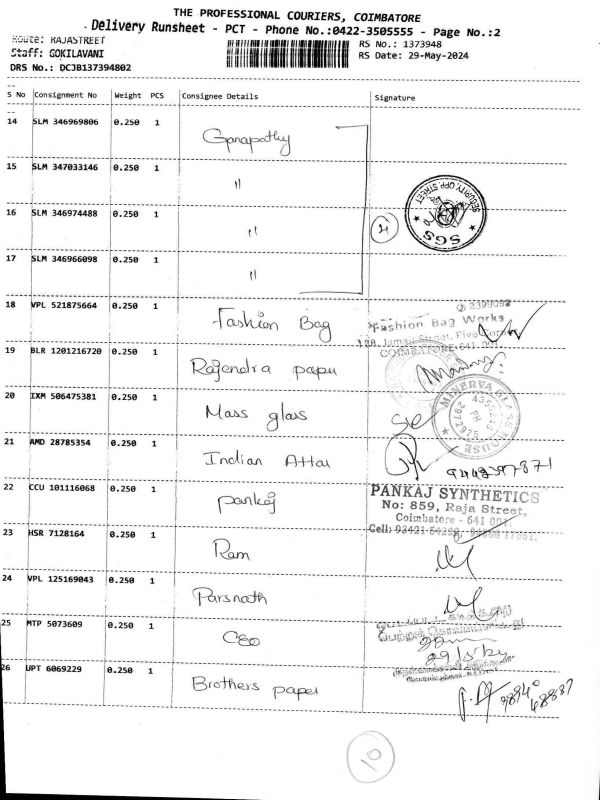 THE PROFESSIONAL COURIERS, COIMBATORE
Delivery Runsheet - PCT - Phone No.:0422-3505555 - Page No.:2
Route: RAJASTREET
RS No.: 1373948
Staff: GOKILAVANI
RS Date: 29-May-2024
DRS No.: DCJB137394802
S No Consignment No Weight PCS Consignee Details Signature
14 SLM 346969806 0.250 1 Ganapathy
15 SLM 347033146 0.250 1 "
SECURITY, OPP STREET
SGS
16 SLM 346974488 0.250 1 " 4
17 SLM 346966098 0.250 1 "
18 VPL 521875664 0.250 1 Fashion Bag
Fashion Bag Works
COIMBATORE-641 001.
19 BLR 1201216720 0.250 1 Rajendra papu
20 IXM 506475381 0.250 1 Mass glass
MINERVA GLASS HOUSE
21 AMD 28785354 0.250 1 Indian Attar
22 CCU 101116068 0.250 1 pankaj
PANKAJ SYNTHETICS
No: 859, Raja Street,
Coimbatore - 641 001.
23 HSR 7128164 0.250 1 Ram
24 VPL 125169043 0.250 1 Parsnath
25 MTP 5073609 0.250 1 CEO
29/5/24
26 UPT 6069229 0.250 1 Brothers paper
10